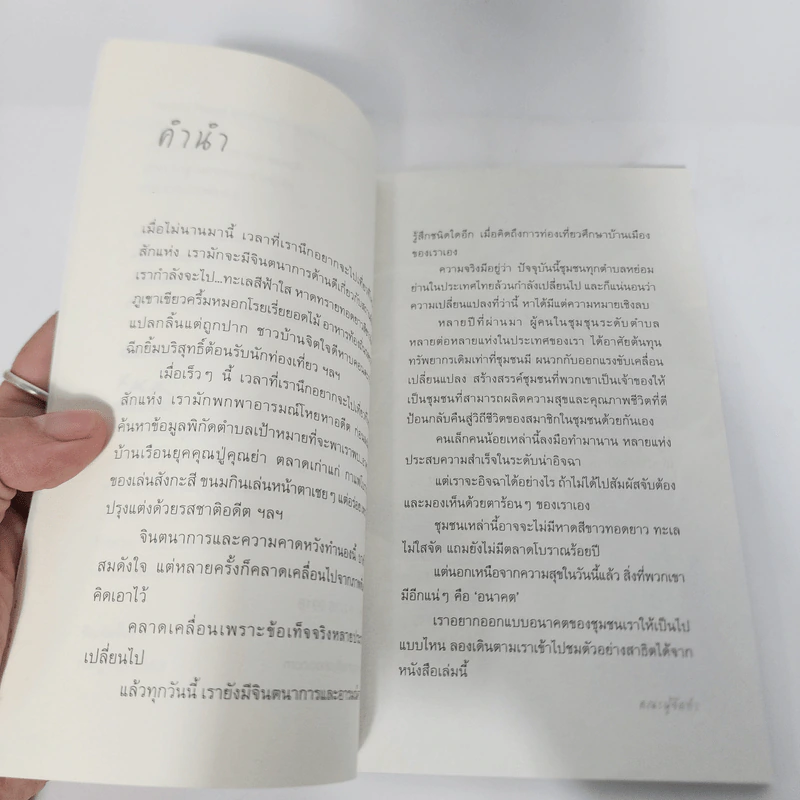 คำนำ
เมื่อไม่นานมานี้ เวลาที่เรานึกอยากจะไปเที่ยว
สักแห่ง เรามักจะมีจินตนาการด้านดีเกี่ยวกับ
เรากำลังจะไป...ทะเลสีฟ้าใส หาดทรายทอดยาว
ภูเขาเขียวครึ้มหมอกโรยเรี่ยยอดไม้ อาหารท้องถิ่น
แปลกลิ้นแต่ถูกปาก ชาวบ้านจิตใจดีหาบคอน
ฉีกยิ้มบริสุทธิ์ต้อนรับนักท่องเที่ยว ฯลฯ
เมื่อเร็วๆ นี้ เวลาที่เรานึกอยากจะไปเที่ยว
สักแห่ง เรามักพกพาอารมณ์โหยหาอดีต ก่อน
ค้นหาข้อมูลพิกัดตำบลเป้าหมายที่จะพาเรา
บ้านเรือนยุคคุณปู่คุณย่า ตลาดเก่าแก่ กาแฟ
ของเล่นสังกะสี ขนมกินเล่นหน้าตาเชยๆ แต่อร่อย
ปรุงแต่งด้วยรสชาติอดีต ฯลฯ
จินตนาการและความคาดหวังทำนองนี้
สมดังใจ แต่หลายครั้งก็คลาดเคลื่อนไปจากภาพ
คิดเอาไว้
คลาดเคลื่อนเพราะข้อเท็จจริงหลาย
เปลี่ยนไป
แล้วทุกวันนี้ เรายังมีจินตนาการและ
รู้สึกชนิดใดอีก เมื่อคิดถึงการท่องเที่ยวศึกษาบ้านเมือง
ของเราเอง
ความจริงมีอยู่ว่า ปัจจุบันนี้ชุมชนทุกตำบลหย่อม
ย่านในประเทศไทยล้วนกำลังเปลี่ยนไป และก็แน่นอนว่า
ความเปลี่ยนแปลงที่ว่านี้ หาได้มีแต่ความหมายเชิงลบ
หลายปีที่ผ่านมา ผู้คนในชุมชุนระดับตำบล
หลายต่อหลายแห่งในประเทศของเรา ได้อาศัยต้นทุน
ทรัพยากรเดิมเท่าที่ชุมชนมี ผนวกกับออกแรงขับเคลื่อน
เปลี่ยนแปลง สร้างสรรค์ชุมชนที่พวกเขาเป็นเจ้าของให้
เป็นชุมชนที่สามารถผลิตความสุขและคุณภาพชีวิตที่ดี
ป้อนกลับคืนสู่วิถีชีวิตของสมาชิกในชุมชนด้วยกันเอง
คนเล็กคนน้อยเหล่านี้ลงมือทำมานาน หลายแห่ง
ประสบความสำเร็จในระดับน่าอิจฉา
แต่เราจะอิจฉาได้อย่างไร ถ้าไม่ได้ไปสัมผัสจับต้อง
และมองเห็นด้วยตาร้อนๆ ของเราเอง
ชุมชนเหล่านี้อาจจะไม่มีหาดสีขาวทอดยาว ทะเล
ไม่ใสจัด แถมยังไม่มีตลาดโบราณร้อยปี
แต่นอกเหนือจากความสุขในวันนี้แล้ว สิ่งที่พวกเขา
มีอีกแน่ๆ คือ 'อนาคต'
เราอยากออกแบบอนาคตของชุมชนเราให้เป็นไป
แบบไหน ลองเดินตามเราเข้าไปชมตัวอย่างสาธิตได้จาก
หนังสือเล่มนี้
คณะผู้จัดทำ